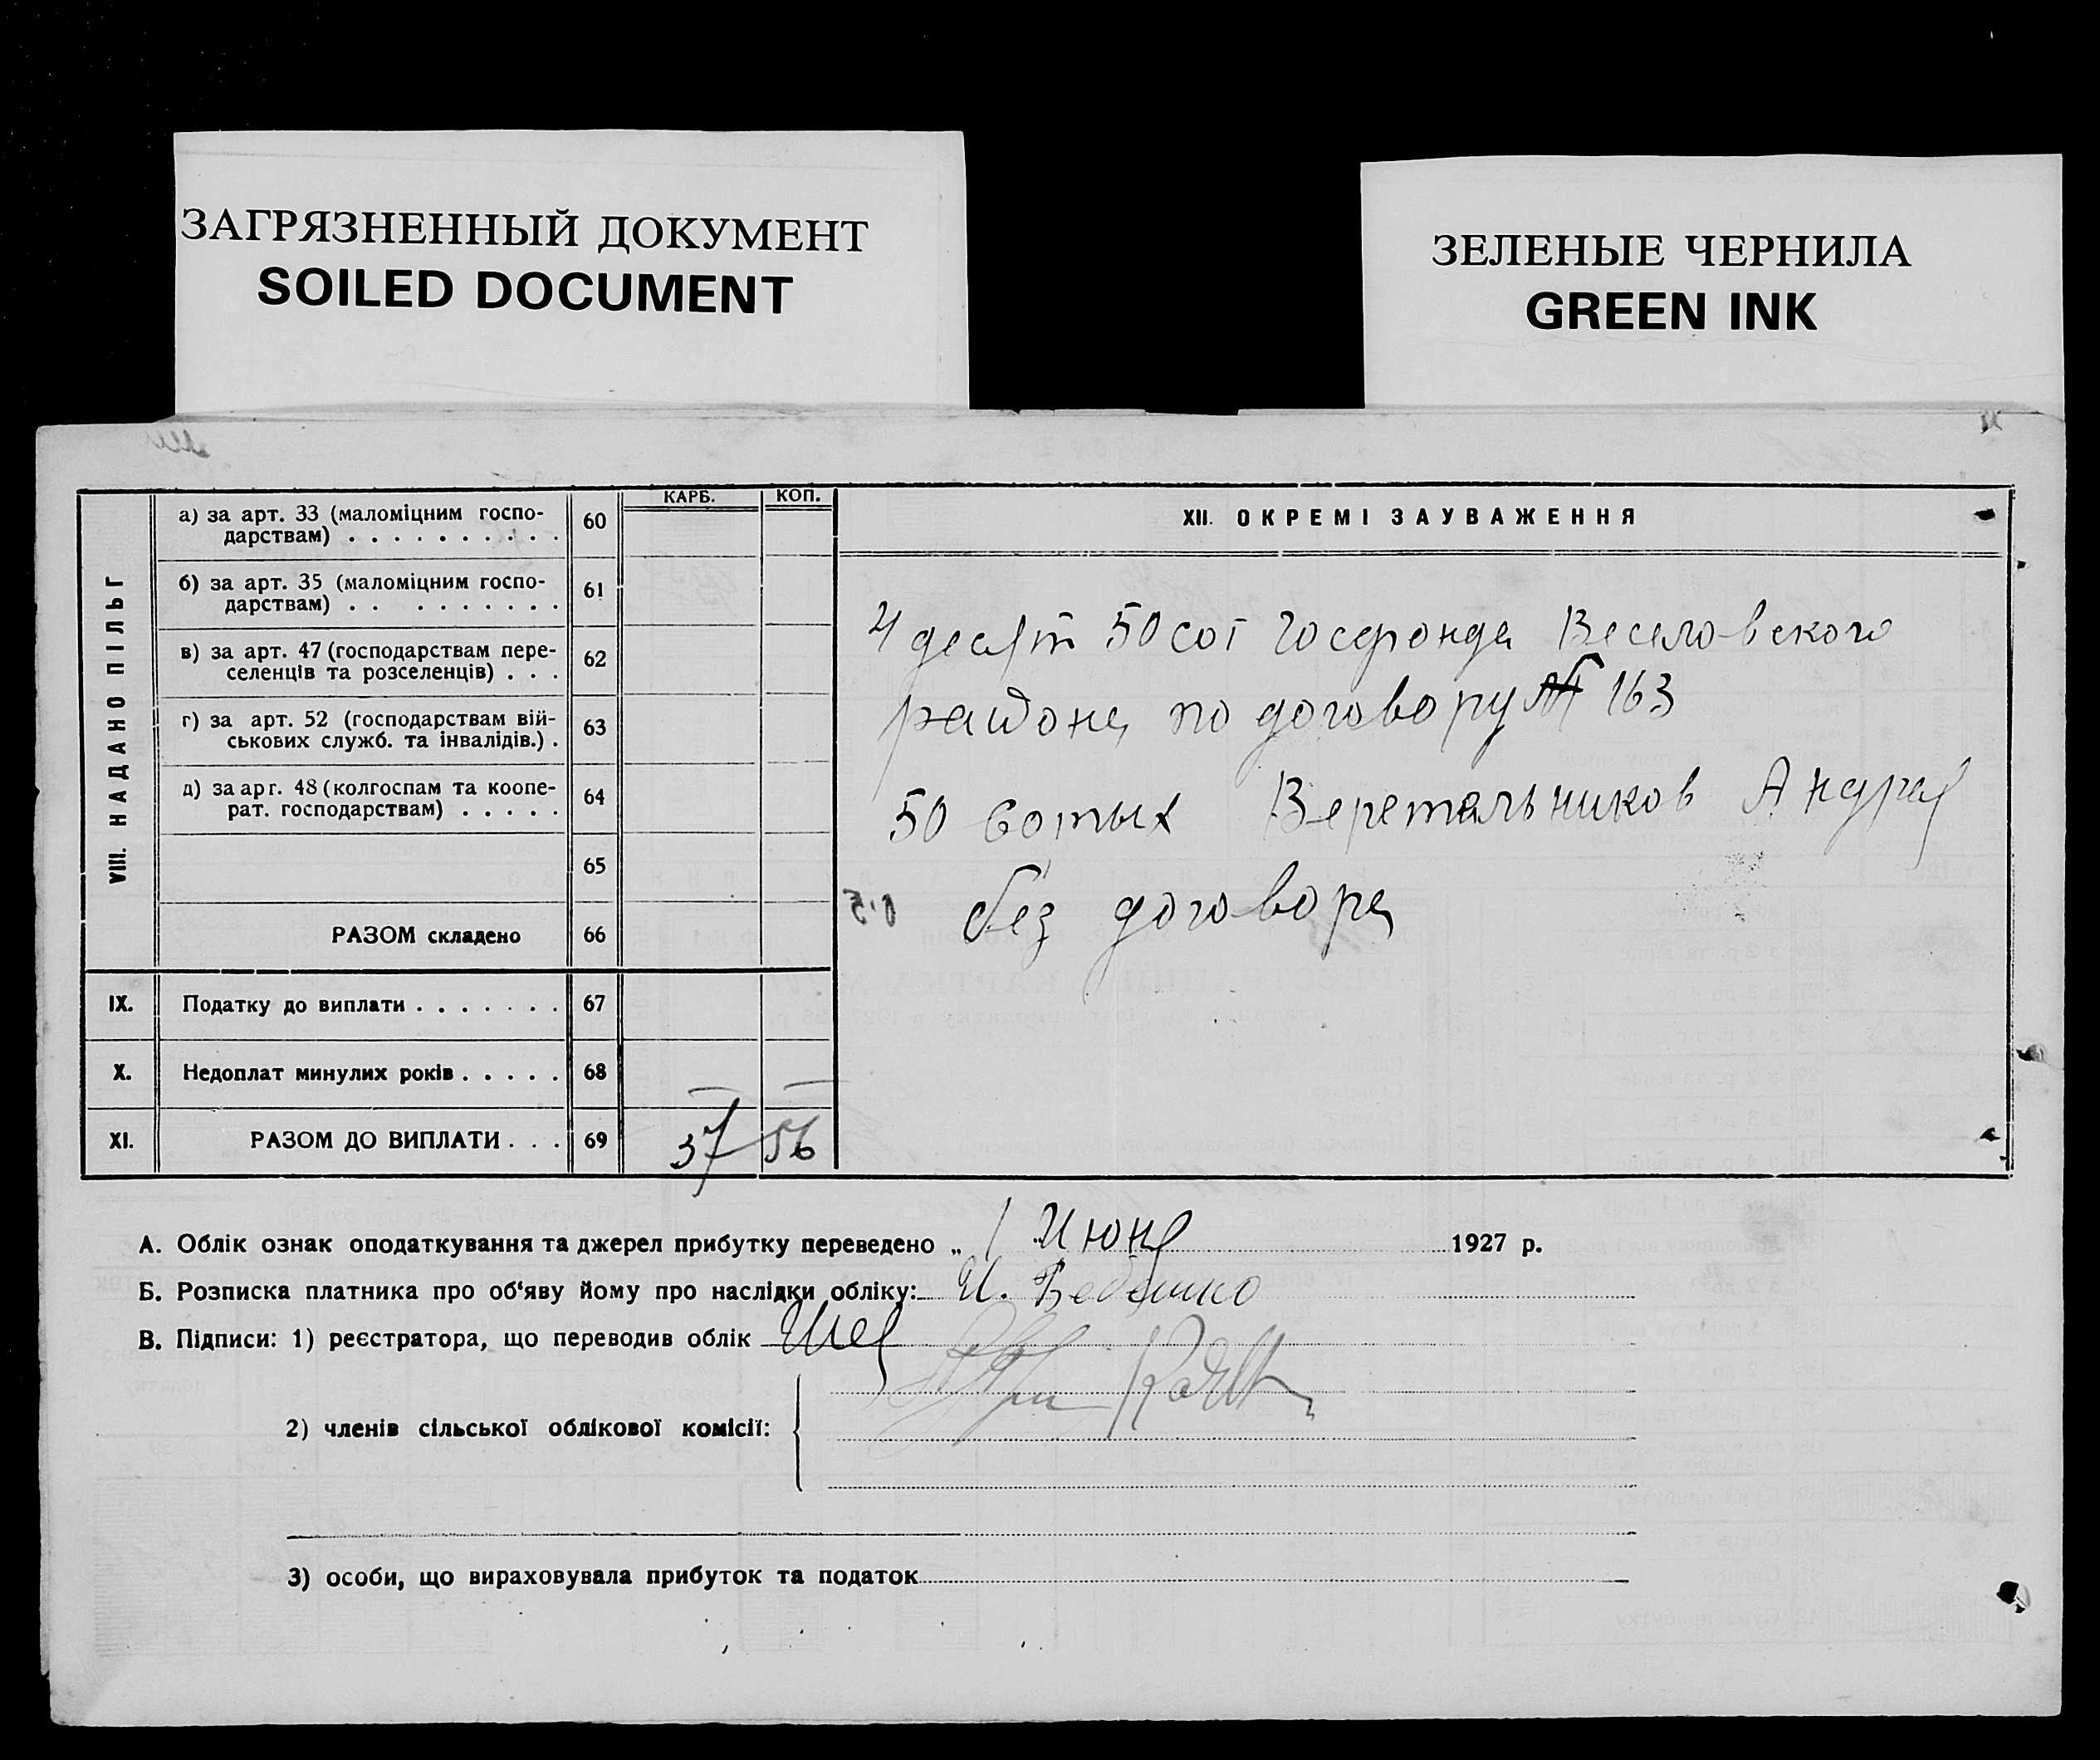 ЗАГРЯЗНЕННЫЙ ДОКУМЕНТ
SOILED DOCUMENT
ЗЕЛЕНЫЕ ЧЕРНИЛА
GREEN INK
КАРБ. КОП.
VIII. НАДАНО ПІЛЬГ
а) за арт. 33 (маломіцним госпо-
дарствам) . . . . . . . . . . 60
б) за арт. 35 (маломіцним госпо-
дарствам) . . . . . . . . . 61
в) за арт. 47 (господарствам пере-
селенців та розселенців) . . . 62
г) за арт. 52 (господарствам вій-
ськових служб. та інвалідів.) . 63
д) за арг. 48 (колгоспам та коопе-
рат. господарствам) . . . . . 64
65
РАЗОМ складено 66
IX. Податку до виплати . . . . . . . 67
X. Недоплат минулих років . . . . . 68
XI. РАЗОМ ДО ВИПЛАТИ . . . 69 37 56
XII. ОКРЕМІ ЗАУВАЖЕННЯ
4 десят 50 сот Госфонда Веселовского
района по договору № 163
50 сотых Веретельников Андрей
без договора
А. Облік ознак оподаткування та джерел прибутку переведено „ 1 Июня 1927 р.
Б. Розписка платника про об'яву йому про наслідки обліку: И.
В. Підписи: 1) реєстратора, що переводив облік
2) членів сільської облікової комісії:
3) особи, що вираховувала прибуток та податок